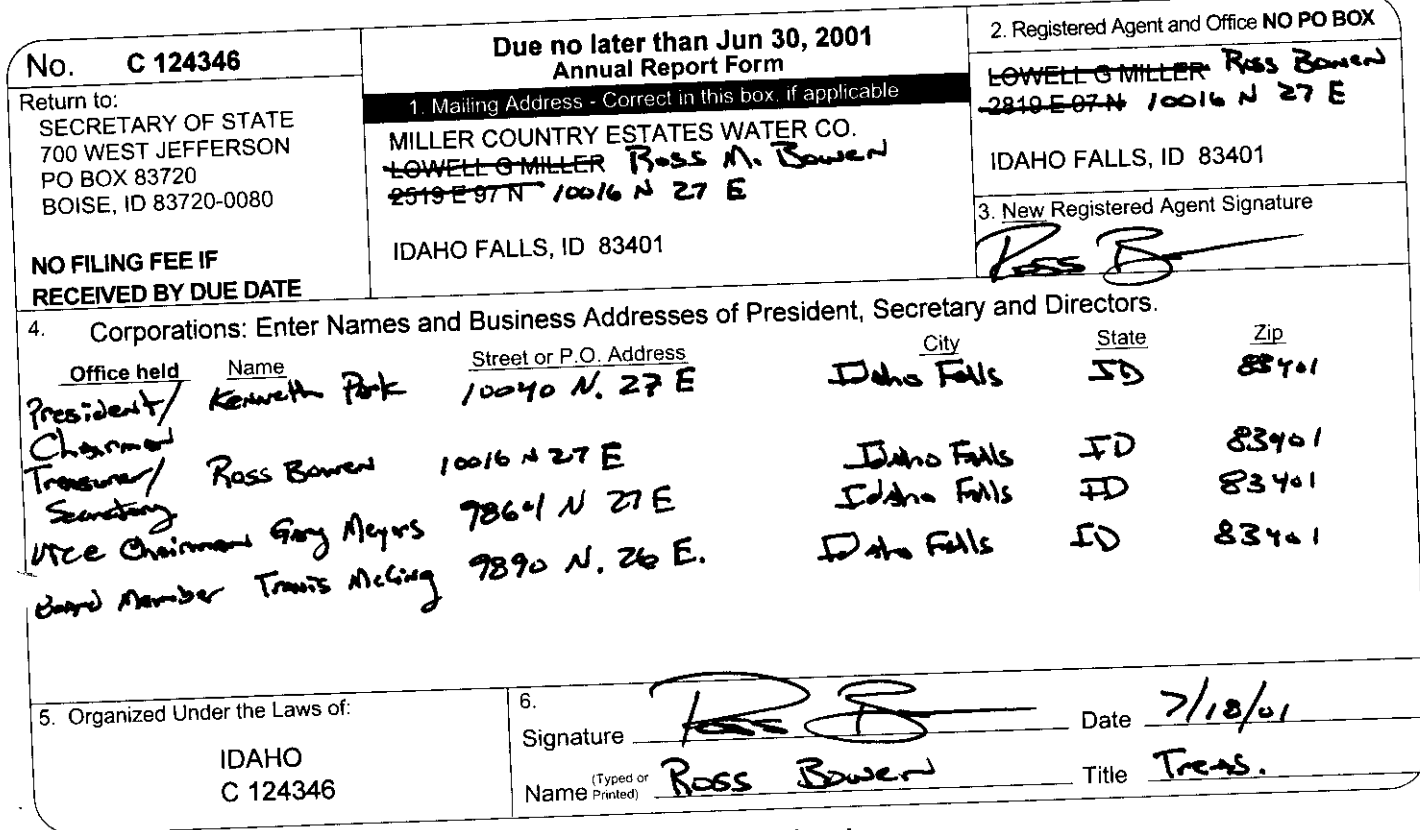 No. C 124346
Return to:
SECRETARY OF STATE
700 WEST JEFFERSON
PO BOX 83720
BOISE, ID 83720-0080
NO FILING FEE IF
RECEIVED BY DUE DATE
Due no later than Jun 30, 2001
Annual Report Form
1. Mailing Address - Correct in this box, if applicable
MILLER COUNTRY ESTATES WATER CO.
LOWELL G MILLER Ross M. Bowen
2519 E 97 N 10016 N 27 E
IDAHO FALLS, ID 83401
2. Registered Agent and Office NO PO BOX
LOWELL G MILLER Ross Bowen
2819 E 97 N 10016 N 27 E
IDAHO FALLS, ID 83401
3. New Registered Agent Signature
Ross B
4. Corporations: Enter Names and Business Addresses of President, Secretary and Directors.
Office held Name Street or P.O. Address City State Zip
President/ Kenneth Park 10040 N. 27 E Idaho Falls ID 83401
Chairman
Treasurer/ Ross Bowen 10016 N 27 E Idaho Falls ID 83401
Secretary
Vice Chairman Gary Meyers 9864 N 27 E Idaho Falls ID 83401
Board Member Travis 9890 N. 26 E. Idaho Falls ID 83401
5. Organized Under the Laws of:
IDAHO
C 124346
6.
Signature Ross B Date 7/18/01
Name (Typed or Printed) Ross Bowen Title Treas.